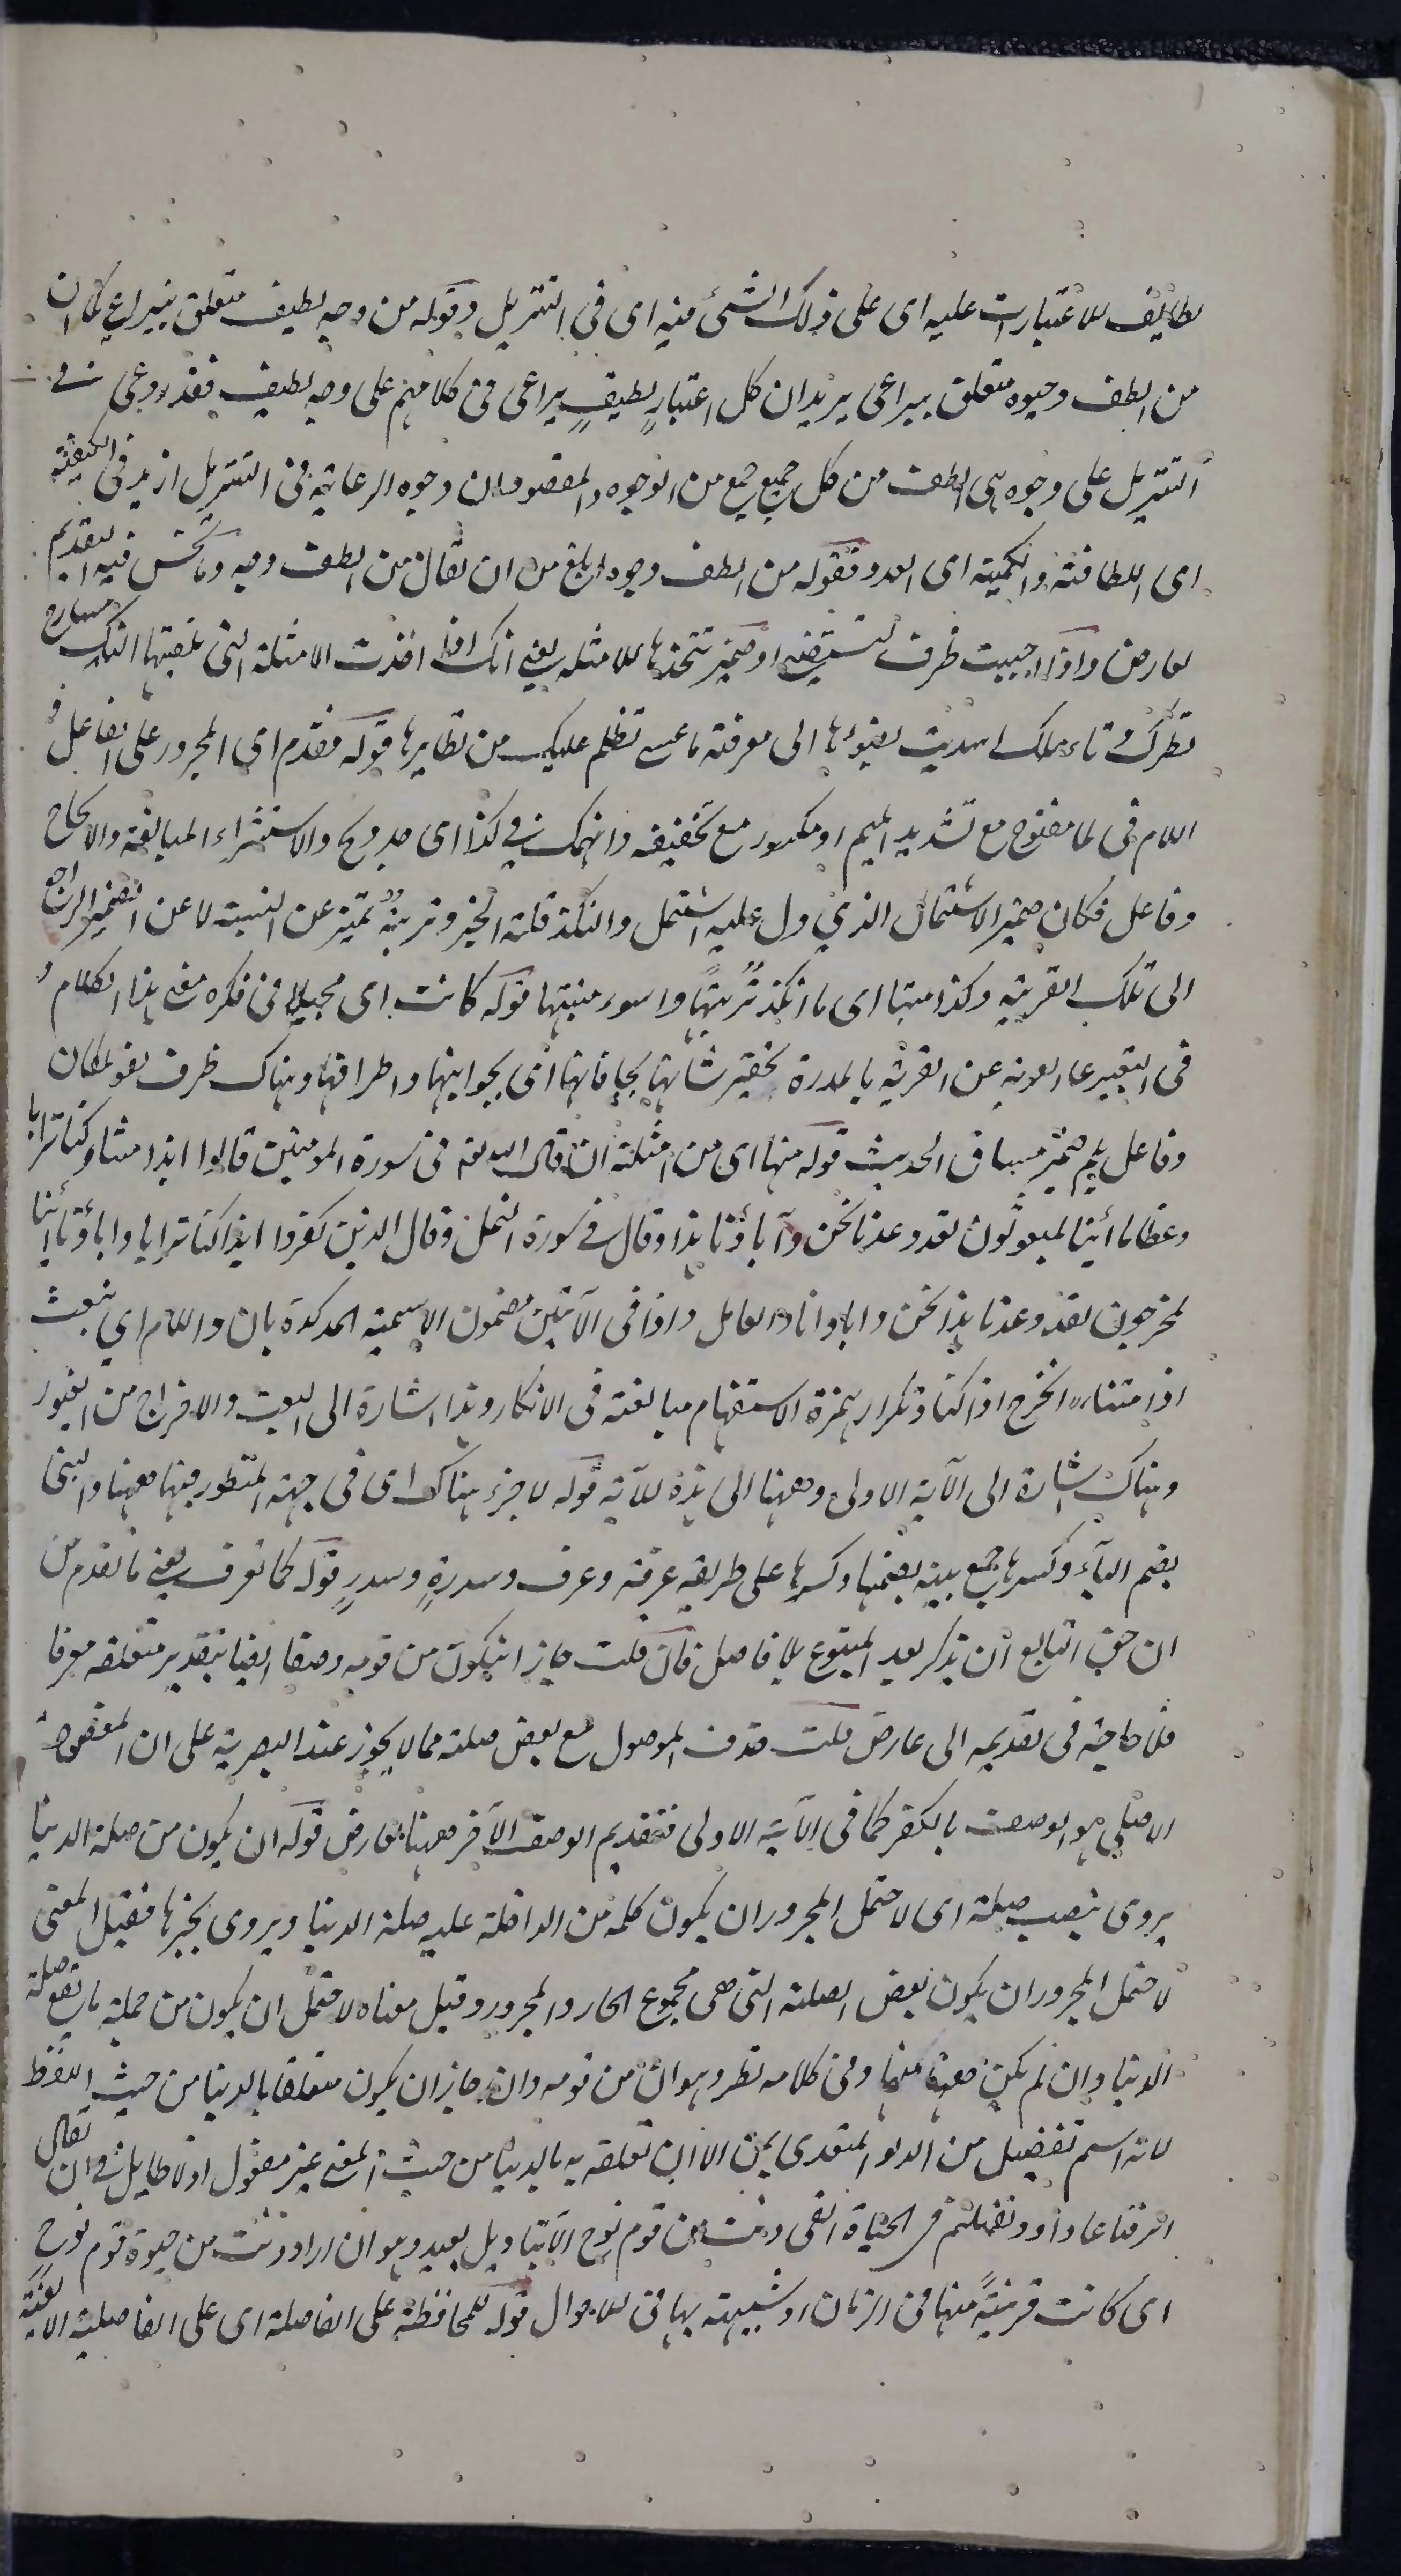 لطايف للاعتبارات عليه اى على ذلك الشئ فيه اى فى التنزيل وقوله من وجه لطيف متعلق بيراعى كما ان
من الطف وجوه متعلق بيراعى يريد ان كل اعتبارٍ لطيفٍ يراعى فى كلامهم على وجه لطيف فقد روعى فى
التنزيل على وجوه هى الطف من كل جميع جميع من الوجوه والمقصود ان وجوه الرعاية فى التنزيل ازيد فى الكيفية
اى اللطافة والكمية اى العدد فقوله من الطف وجوه ابلغ من ان يقال من الطف وجه وما يحسن فيه التقديم
لعارض واذا اجبيت ظرف لتستضئ او ضمير تتخذها للامثلة يعنى انك اذا اخذت الامثلة التى نلقيها اليك مسارح
نظرك وتاءملك اهديت بضوءها الى معرفة ما عسى تظلم عليك من نظايرها قوله فقدم اى المجرور على الفاعل و
اللام فى لما مفتوح مع تشديد الميم او مكسور مع تخفيفه وانهمك فى كذا اى جد ولج والاستشراء المبالغة والالحاح
وفاعل فكان ضمير الاشتمال الذي دل عليه اشتمل والنكد قلة الخير وتربيةً تميز عن النسبة لا عن الضمير الراجع
الى تلك القرية وكذا منبتا اى ما انكد تربتها واسوء منبتها قوله كانت اى مجيلا فى فكره معنى هذا الكلام و
فى التعبير عن القرية بالمدرة تحقير شانها بحافاتها اى بجوانبها واطرافها وهناك ظرف لغو لمكان
وفاعل يلم ضمير مساق الحديث قوله منها اى من امثلة ان قال الله تع فى سورة المومنين قالوا ايذا متنا وكنا ترابا
وعظاما أينا لمبعوثون لقد وعدنا نحن وآباؤنا هذا وقال فى سورة النمل وقال الذين كفروا ايذا كنا ترابا واباؤنا أينا
لمخرجون لقد وعدنا هذا نحن واباؤنا والعامل واذا فى الآيتين مضمون الاسمية المذكورة بان واللام اى نبعث
اذا متنا او نخرج اذا كنا وتكرار همزة الاستفهام مبالغة فى الانكار وهذا اشارة الى البعث والاخراج من القبور
وهناك اشارة الى الآية الاولى وههنا الى هذه الآية قوله لا جزء هناك اى فى جهة المنظور فيها ههنا والبنى
بضم الباء وكسرها جمع بنية بضمها وكسرها على طريقه غرفة وغرف وسدرةٍ وسدرٍ قوله كما تعرف يعنى ما تقدم من
ان حق التابع ان يذكر بعد المتبوع بلا فاصل فان قلت جاز ان يكون من قومه وصفا ايضا بتقدير متعلقه معرفا
فلا حاجة فى تقديمه الى عارض قلت حذف الموصول مع بعض صلته مما لا يجوز عند البصرية على ان المقصود
الاصلى هو الوصف بالكفر كما فى الآية الاولى فتقديم الوصف الآخر ههنا لعارض قوله ان يكون من صلة الدنيا
يروى بنصب صلة اى لاحتمل المجرور ان يكون كلمة من الداخلة عليه صلة الدنيا ويروى بجرها فقيل المعنى
لاحتمل المجرور ان يكون بعض الصلة التى هى مجموع الجار والمجرور وقيل معناه لاحتمل ان يكون من جملة ما يقع صلة
الدنيا وان لم يكن ههنا منها وفى كلامه نظر وهو ان من قومه وان جاز ان يكون متعلقا بالدنيا من حيث اللفظ
لانه اسم تفضيل من الدنو المتعدى بمن الا ان تعلقه به بالدنيا من حيث المعنى غير معقول اذ لا طايل فى ان يقال
اترفنا عادا ونعمتهم فى الحياة التى دنت من قوم نوح الا بتاويل بعيد وهو ان اراد دنت من حيوة قوم نوحٍ
اى كانت قريبةً منها فى الزمان او شبيهة بها فى الاحوال قوله للمحافظة على الفاصلة اى على الفاصلية الالفية